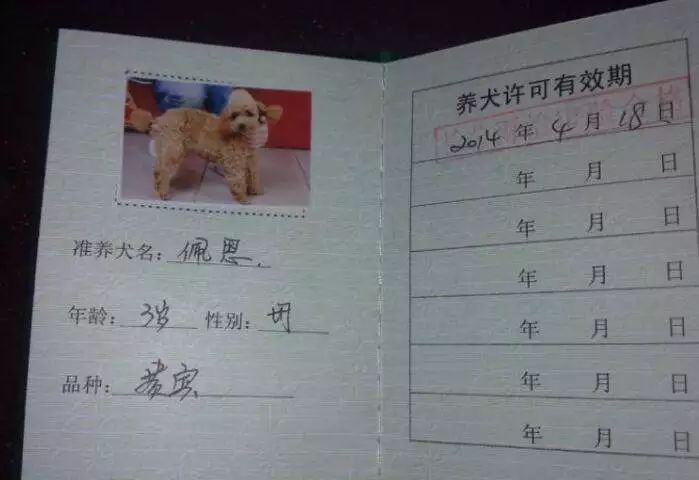 准养犬名：佩恩.
年龄：3岁 性别：
品种：贵宾
养犬许可有效期
2014年4月18日
年 月 日
年 月 日
年 月 日
年 月 日
年 月 日
年 月 日